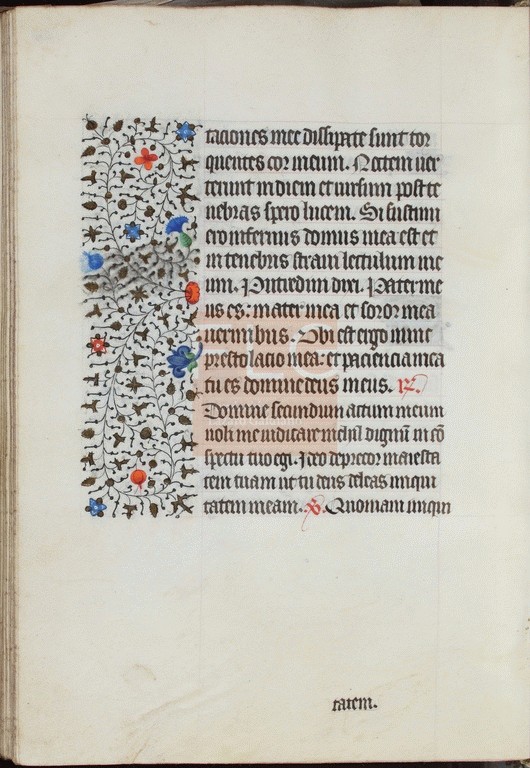 taciones mee dissipate sunt tor
quentes cor meum. Noctem uer
terunt in diem et rursum post te
nebras spero lucem. Si sustinu
ero infernus domus mea est et
in tenebris straui lectulum me
um. Putredini dixi. Pater me
us es: mater mea et soror mea
uermibus. Ubi est ergo nunc
prestolacio mea: et paciencia mea
tu es domine deus meus. R.
Domine secundum actum meum
noli me iudicare nichil dignū in cō
spectu tuo egi. Ideo deprecor maiesta
tem tuam ut tu deus deleas iniqui
tatem meam. V. Quoniam iniqui
tatem.